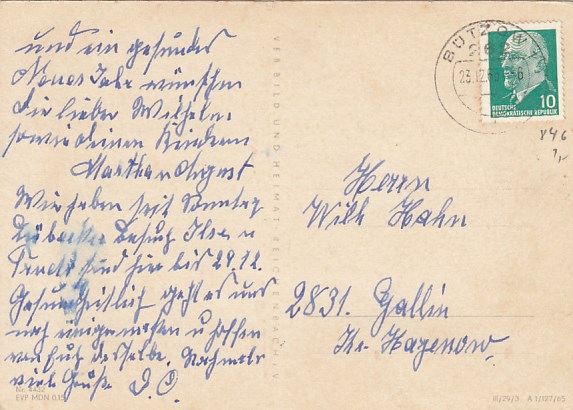 und ein gesundes
Neues Jahr wünschen
dir lieber Wilhelm
sowie deinen Kindern
Martha u August
Wir haben seit Sonntag
Lübecker Besuch Ilse u
sind hier bis 29.12.
Gesundheitlich geht es uns
noch einigermaßen u hoffen
von Euch dasselbe. Nochmals
viele Grüße D. O.
Nr. 4432
EVP MDN 0,15
VEB BILD UND HEIMAT REICHENBACH I. V.
BÜTZOW 1
262
23.12.
10
DEUTSCHE
DEMOKRATISCHE REPUBLIK
846
1,-
Herrn
Wilh Hahn
2831. Gallin
Kr. Hagenow
III/29/3 A 1/127/65